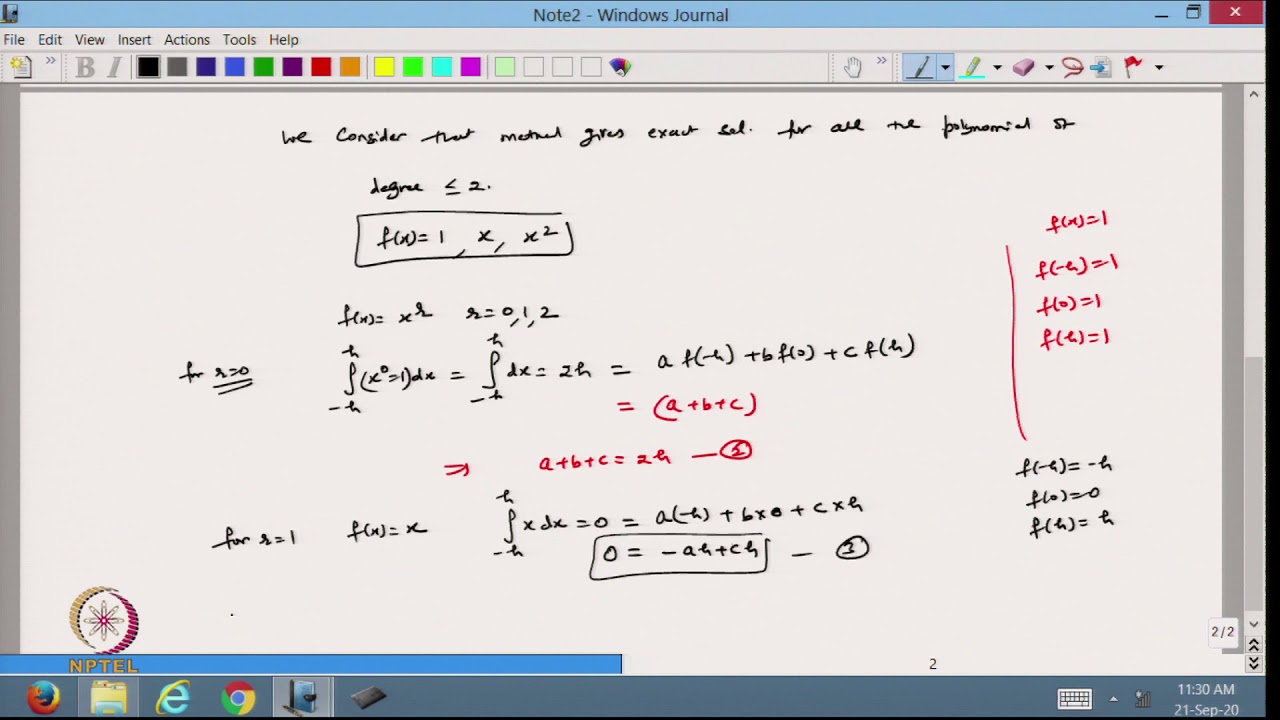 Note2 - Windows Journal
File Edit View Insert Actions Tools Help
B I
We Consider that method gives exact sol. for all the polynomial of
degree ≤ 2.
f(x)=1, x, x²
f(x)= x^r r=0,1,2
for r=0 ∫_{-h}^{h} (x⁰=1)dx = ∫_{-h}^{h} dx = 2h = a f(-h) + b f(0) + c f(h)
= (a+b+c)
⇒ a+b+c = 2h — ②
for r=1 f(x)=x ∫_{-h}^{h} x dx = 0 = a(-h) + b×0 + c×h
0 = -ah+ch — ③
f(x)=1
f(-h)=1
f(0)=1
f(h)=1
f(-h)=-h
f(0)=0
f(h)=h
NPTEL
2
2/2
11:30 AM
21-Sep-20